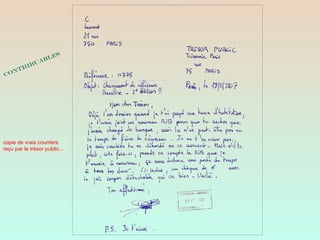 CONTRIBUABLES
copie de vrais courriers
reçu par le trésor public...
C
Laurent
21 rue
750 PARIS
TRESOR PUBLIC
Trésorerie Paris
rue
75 PARIS
Paris, le 19/11/2007
Référence : 11775
Objet : Changement de référence
bancaire - 2e édition !!
Mon cher Trésor,
Déjà l'an dernier quand je t'ai payé ma taxe d'habitation,
je t'avais joint un nouveau RIB pour que tu saches que
j'avais changé de banque, mais tu n'as peut être pas eu
le temps de faire le nécessaire. Je ne t'en veux pas,
je suis combien tu es débordé en ce moment. Mais s'il te
plaît, cette fois-ci, prends en compte le RIB que je
t'envoie à nouveau, ça nous évitera une perte de temps
à tous les deux. Ci-joint, un chèque de € avec
le joli coupon détachable qui va bien. Voilà.
Ton affectionné,
P.S. Je t'aime.